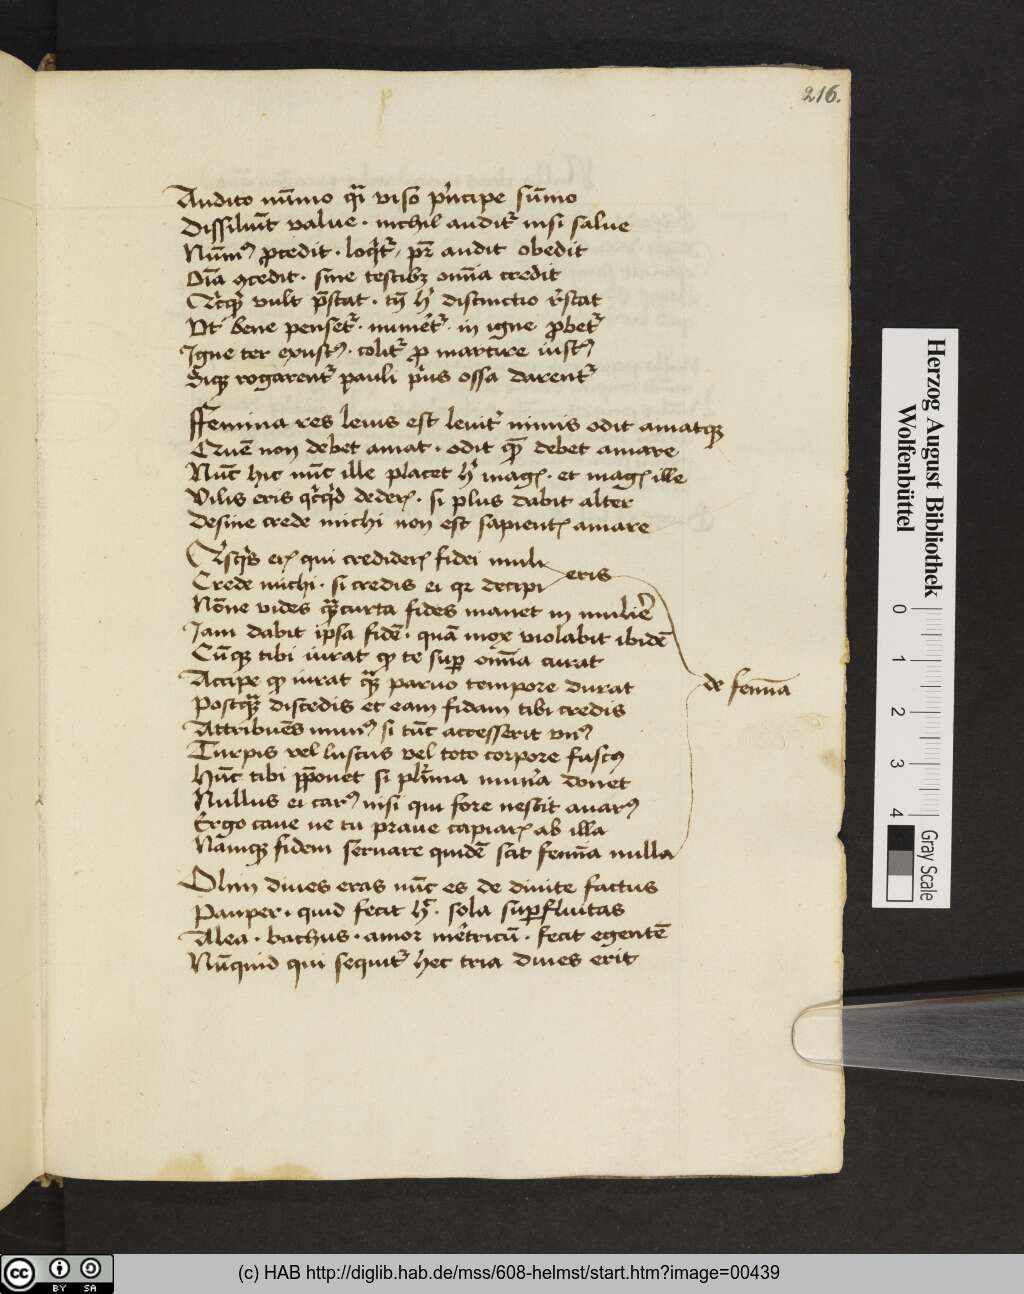 216.
Audito nu̅mo qͣ viso pͥncipe su̅mo
Dissiliu̅t value · nichil auditᷣ nisi salue
Nu̅mꝰ ꝓcedit · loqͥtᷣ, pr̅ audit obedit
Oi̅a ꝯcedit · sine testibꝫ om̅ia credit
vult p̅stat · distinctio rͥstat
Ut bene pensetᷣ · numeᷣtᷣ · in igne ꝓbetᷣ
Igne ter exustꝰ · colitᷣ ꝓ martire iustꝰ
Sicqꝫ rogarentᷣ pauli pͥus ossa darentᷣ
Femina res leuis est leuitᷣ nimis odit amatqꝫ
Que̅ non debet amat · odit qꝫ̅ debet amare
Nu̅c hic nu̅c ille placet hͥ magꝭ · et magꝭ ille
Vilis eris qͥcqͥd dederꝭ · si plus dabit alter
Desine crede michi non est sapientꝭ amare
Qͥsqͥs eꝭ qui crediderꝭ fidei muli
Crede michi · si credis ei qꝛ decipi
eris
No̅ne vides qͣ̅ curta fides manet in mulie̅
Iam dabit ipsa fide̅ · qua̅ mox violabit ibide̅
Cu̅qꝫ tibi iurat ꝙ te suꝑ om̅ia curat
Accipe ꝙ iurat qͣ̅ paruo tempore durat
Postqͣ̅ discedis et eam fidam tibi credis
de femi̅a
Attribue̅s munꝰ si tu̅c accesserit vnꝰ
Turpis vel luscus vel toto corpore fuscꝰ
Hu̅c tibi p̅ponet si plͥma munͥa donet
Nullus ei carꝰ nisi qui fore nescit auarꝰ
Ergo caue ne tu praue capiarꝭ ab illa
Na̅qꝫ fidem seruare quide̅ scit femi̅a nulla
Olim diues eras nu̅c es de diuite factus
Pauper · quid fecit hͣ · sola suꝑfluitas
Alea · bachus · amor meᷣtricu̅ · fecit egente̅
Nu̅quid qui sequitᷣ hec tria diues erit
Herzog August Bibliothek
Wolfenbüttel
0 1 2 3 4
Gray Scale
cc BY SA
(c) HAB http://diglib.hab.de/mss/608-helmst/start.htm?image=00439